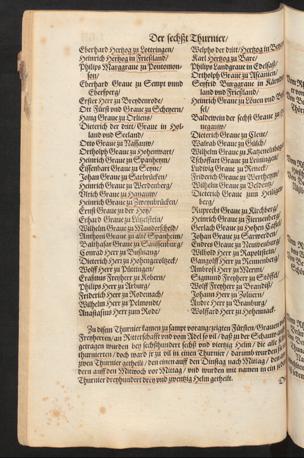 Der sechßt Thurnier/
Eberhard Hertzog zu Lottringen/
Heinrich Hertzog in Frießland/
Philips Marggraue zu Pontomou-
son/
Eberhard Graue zu Sempt vnnd
Ebersperg/
Erffter Herr zu Weydenrode/
Ott Fürst vnd Graue zu Scheyern/
Hang Graue zu Orliens/
Dieterich der dritt/Graue in Hol-
land vnd Seeland/
Otto Graue zu Nassauw/
Ortholph Graue zu Hohenwart/
Heinrich Graue zu Spanheym/
Eissenhart Graue zu Seyne/
Johan Graue zu Sarbrücken/
Heinrich Graue zu Werdenberg/
Ulrich Graue zu Hanauw/
Heinrich Graue zu Zweynbrücken/
Ernst Graue zu der Hoy/
Erhard Graue zu Lützelstein/
Wilhelm Graue zu Manderscheid/
Anthoni Graue zu alt Spanheim/
Balthasar Graue zu
Conrad Herr zu Bussnang/
Dieterich Herr zu Hohengeroltzeck/
Wolff Herr zu Püttingen/
Erasmus Freyherr zu Kobern/
Philips Herr zu Arburg/
Friderich Herr zu Rodemach/
Wilhelm Herr zu Pelmonde/
Anastasius Herr zum Rode/
Welpho der dritt/Hertzog in
Karl Hertzog zu Bare/
Philips Landgraue in Edelsass/
Ortholph Graue zu Ascanien/
Seyfrid Burggraue in
land vnd Frießland/
Heinrich Graue zu Löuen vnd
sel/
Baldewein der sechst Graue zu
negauw/
Dieterich Graue zu Cleue/
Walrab Graue zu Gülch/
Wilhelm Graue zu Katzenelnbogen
Tschoffart Graue zu Leiningen/
Ludwig Graue zu Reneck/
Friderich Graue zu Wertheym/
Wilhelm Graue zu Veldentz/
Dieterich Graue zum Heiligen-
berg/
Ruprecht Graue zu Kirchberg/
Heinrich Graue zu Fürnenberg/
Gerlach Graue zu Hohen
Johan Graue zu Sarwerden/
Endres Graue zu Neuwenburg/
Wilhold Herr zu Rapolstein/
Gangolff Herr zu Rennenberg/
Ambrosi Herr zu Merum/
Sigmund Freyherr zu Stöffel/
Wolff Freyherr zu Brandiß/
Johans Herr zu Falueren/
Andre Herr zu Branburg/
Wolffard Herr zu Hohennack.
Zu disem Thurnier kamen zu sampt vorangezeigten Fürsten/Grauen
Freyherren/an Ritterschafft vnd vom Adel so vil/daß zu der Schauw
getragen wurden bey sechßhundert sechß vnd viertzig Helm/die alle
thurnierten/doch ward jr zu vil in einen Thurnier/darumb wurden sie in
zwen Thurnier getheilt/den einen auff den Dinstag nach Mittag/den an-
dern auff den Mitwoch vor Mittag/vnd wurden mit namen in ein jeden
Thurnier dreyhundert drey vnd zwentzig Helm getheilt.